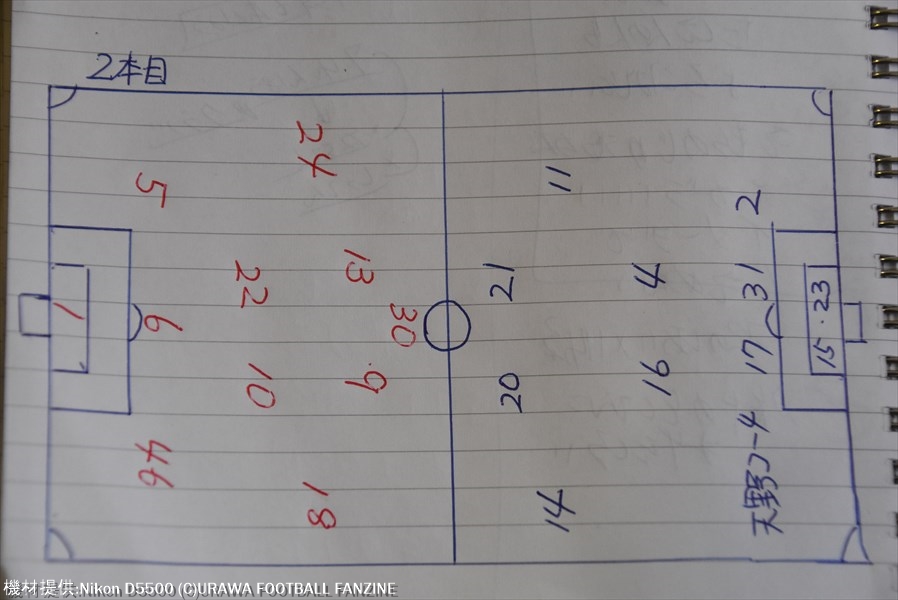 2本目
24
5
11
2
13
22
21
4
31
23
1
6
30
15
17
10
9
20
16
46
18
14
天野コーチ
機材提供:Nikon D5500 (C)URAWA FOOTBALL FANZINE